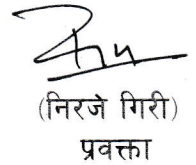 (निरजे गिरी)
प्रवक्ता